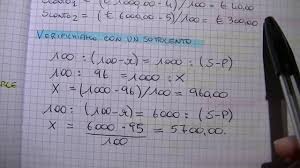 Sconto1 = (€ 1000,00 · 4) / 100 = € 40,00
Sconto2 = (€ 6000,00 · 5) / 100 = € 300,00
VERIFICHIAMO CON UN SOTTOCENTO
100 : (100-r) = 1000 : (S-P)
100 : 96 = 1000 : X
X = (1000 · 96) / 100 = 960,00
100 : (100-r) = 6000 : (S-P)
X = 6000 · 95 / 100 = 5700,00